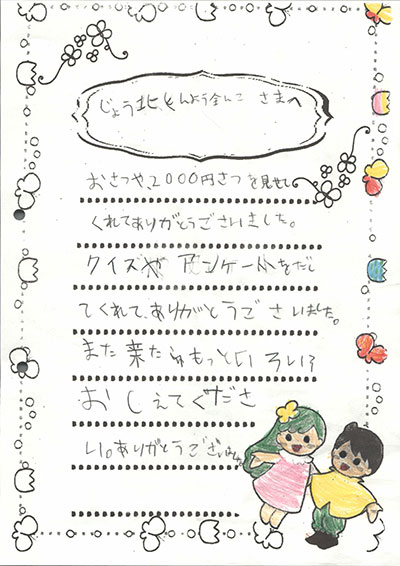 じょう北しんようきんこ さまへ
おさつや、2000円さつを見せし
くれてありがとうございました。
クイズや アンケートをだし
てくれて、ありがとうございました。
また来たらもっといろいろ
おしえてくださ
い。ありがとうございました。